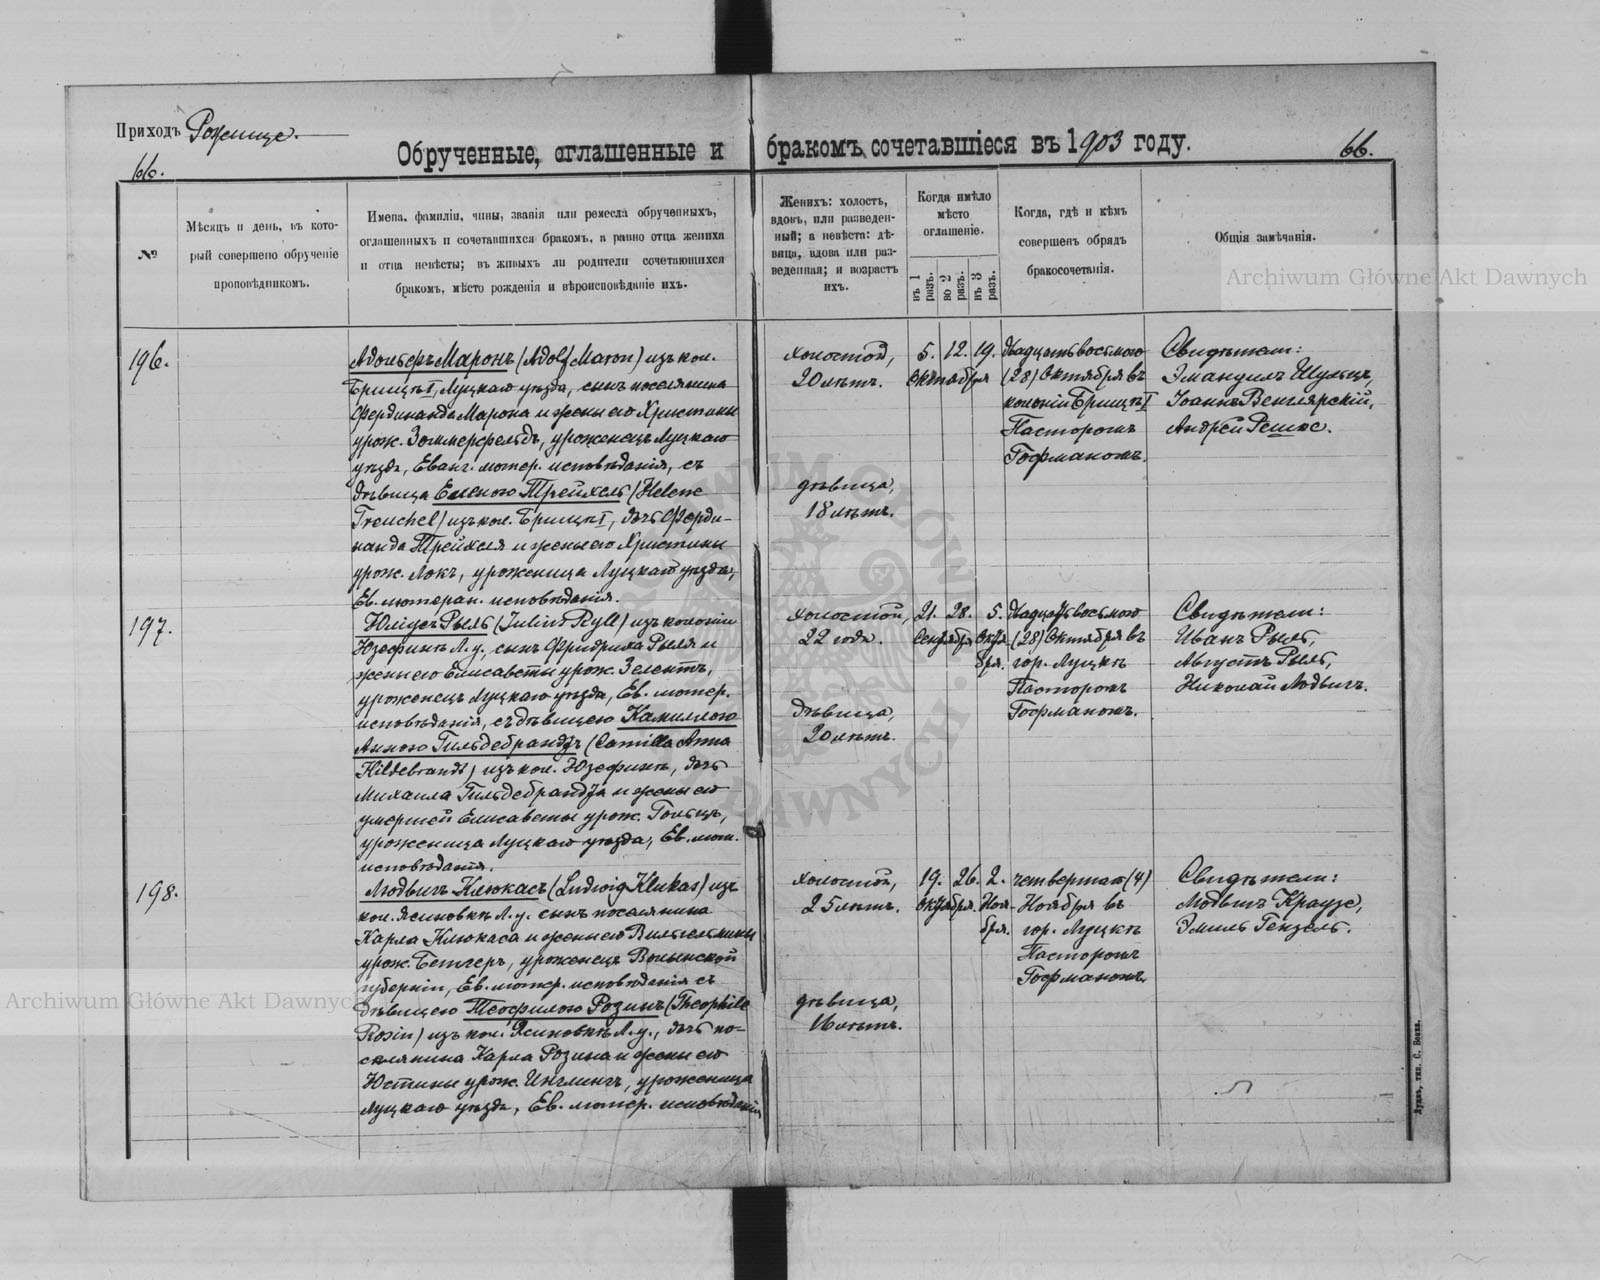 Приходъ Рожище.
66.
Обрученные, оглашенные и бракомъ сочетавшіеся въ 1903 году.
66.
№
Мѣсяцъ и день, въ кото-
рый совершено обрученіе
проповѣдникомъ.
Имена, фамиліи, чины, званія или ремесла обрученныхъ,
оглашенныхъ и сочетавшихся бракомъ, а равно отца жениха
и отца невѣсты; въ живыхъ ли родители сочетающихся
бракомъ, мѣсто рожденія и вѣроисповѣданіе ихъ.
Женихъ: холостъ,
вдовъ, или разведен-
ный; а невѣста: дѣ-
вица, вдова или раз-
веденная; и возрастъ
ихъ.
Когда имѣло
мѣсто
оглашеніе.
въ 1
разъ.
во 2
разъ.
въ 3
разъ.
Когда, гдѣ и кѣмъ
совершенъ обрядъ
бракосочетанія.
Общія замѣчанія.
Archiwum Główne Akt Dawnych
196.
Адольфъ Маронъ (Adolf Maron) изъ кол.
Брищъ I, Луцкаго уѣзда, сынъ поселянина
Фердинанда Марона и жены его Христины
урож. Зоммерфельдъ, уроженецъ Луцкаго
уѣзда, Еванг. лютер. исповѣданія, съ
дѣвица Еленою Трейхель (Helene
Treuchel) изъ кол. Брищъ I, дочь Ферди-
нанда Трейхеля и жены его Христины
урож. Локъ, уроженица Луцкаго уѣзда,
Ев. лютеран. исповѣданія.
холостой,
20 лѣтъ.
дѣвица,
18 лѣтъ.
5. 12. 19.
Октября
Двадцатьвосьмого
(28) Октября въ
колоніи Брищъ I
Пасторомъ
Гофманомъ.
Свидѣтели:
Эмануилъ Шульцъ,
Іоаннъ Венглярскій,
Андрей Решке.
197.
Юліусъ Рыль (Julius Ryll) изъ колоніи
Юзефинъ Л. у., сынъ Фридриха Рыля и
жены его Елисаветы урож. Зелентъ,
уроженецъ Луцкаго уѣзда, Ев. лютер.
исповѣданія, съ дѣвицею Камиллою
Анною Гильдебрандтъ (Camilla Anna
Hildebrandt) изъ кол. Юзефинъ, дочь
Михаила Гильдебрандта и жены его
умершей Елисаветы урож. Гольцъ,
уроженица Луцкаго уѣзда, Ев. лют.
исповѣданія.
холостой,
22 года.
дѣвица,
20 лѣтъ.
21. 28. 5.
Сентября Октя
бря.
Двадцатьвосьмого
(28) Октября въ
гор. Луцкѣ
Пасторомъ
Гофманомъ.
Свидѣтели:
Иванъ Рыль,
Августъ Рыль,
Николай Людвигъ.
198.
Людвигъ Клюкасъ (Ludwig Klukas) изъ
кол. Ясиновкѣ Л. у. сынъ поселянина
Карла Клюкаса и жены его Вильгельмины
урож. Бетхеръ, уроженецъ Волынской
губерніи, Ев. лютер. исповѣданія съ
дѣвицею Теофилою Розинъ (Theophile
Rosin) изъ кол. Ясиновкѣ Л. у., дочь по-
селянина Карла Розина и жены его
Юстины урож. Инглингъ, уроженица
Луцкаго уѣзда, Ев. лютер. исповѣданія
холостой,
25 лѣтъ.
дѣвица,
16 лѣтъ.
19. 26. 2.
Октября. Ноя-
бря.
четвертаго (4)
Ноября въ
гор. Луцкѣ
Пасторомъ
Гофманомъ
Свидѣтели:
Людвигъ Краузе,
Эмиль Гензель.
Archiwum Główne Akt Dawnych